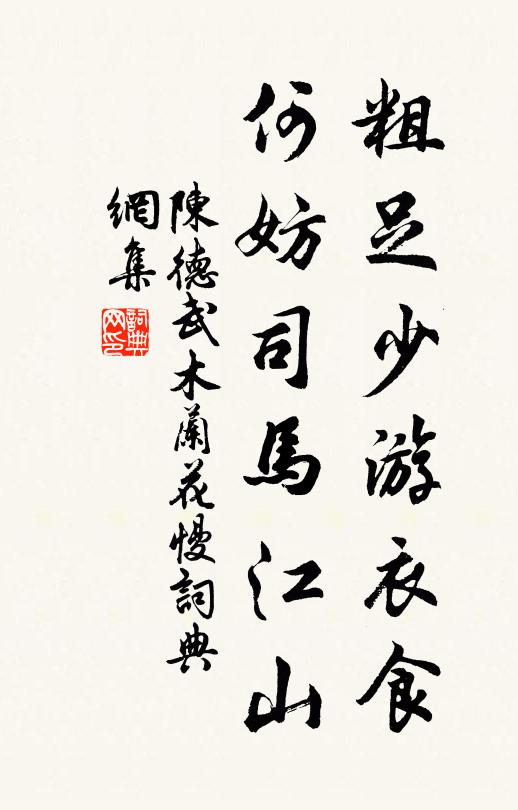 粗足少游衣食
何妨司馬江山
陳德武木蘭花慢詞典
網集
詞典
网印